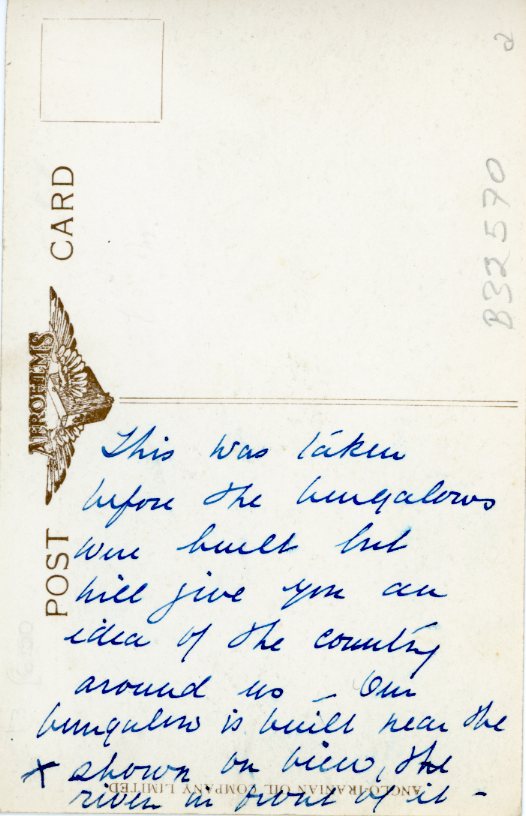 POST CARD
AEROFILMS
B32570
This was taken
before the bungalows
were built but
will give you an
idea of the country
around us - Our
bungalow is built near the
X shown on view, the
river in front of it -
ANGLO-IRANIAN OIL COMPANY LIMITED